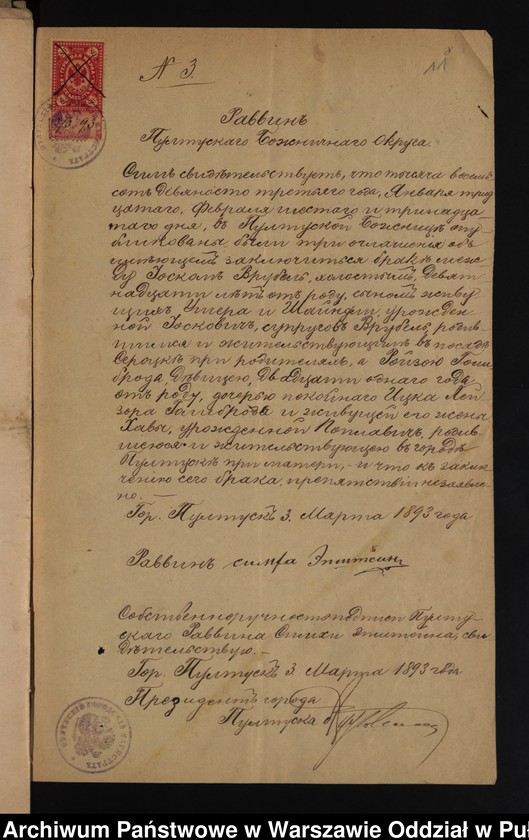 N 3.
11
Раввинъ
Пултускаго Божничнаго Округа.
Симъ свидѣтельствуетъ, что тысяча восемь
сотъ девяносто третьяго года, Января трид
цатаго, Февраля шестаго и тринадца-
таго дня, въ Пултуской Божницѣ опу
бликованы были три оглашенія объ
имѣющемъ заключиться бракѣ меж
ду Іоскомъ Врубель, холостымъ, девят
надцати лѣтъ отъ роду, сыномъ живу
щихъ и урожден
ной Іосковичъ, супруговъ Врубель, родив-
шимся и жительствующимъ въ посадѣ
Сероцкѣ при родителяхъ, а Ройзою Голи
брода, дѣвицею, двадцати однаго года
отъ роду, дочерью покойнаго Ицка Лей
зора Голиброда и живущей его жены
Хавы, урожденной Поплавичъ, родив-
шеюся и жительствующею въ городѣ
Пултускѣ при матери, - и что къ заклю
ченію сего брака, препятствій не заявле
но. —
Гор. Пултускъ 3. Марта 1893 года
Раввинъ симха Эпштейнъ
Собственноручность подписи Пулту-
скаго Раввина Симхи Эпштейна, сви
дѣтельствую. —
Гор. Пултускъ 3. Марта 1893 года
Президентъ города
Пултуска
Archiwum Państwowe w Warszawie Oddział w Pu